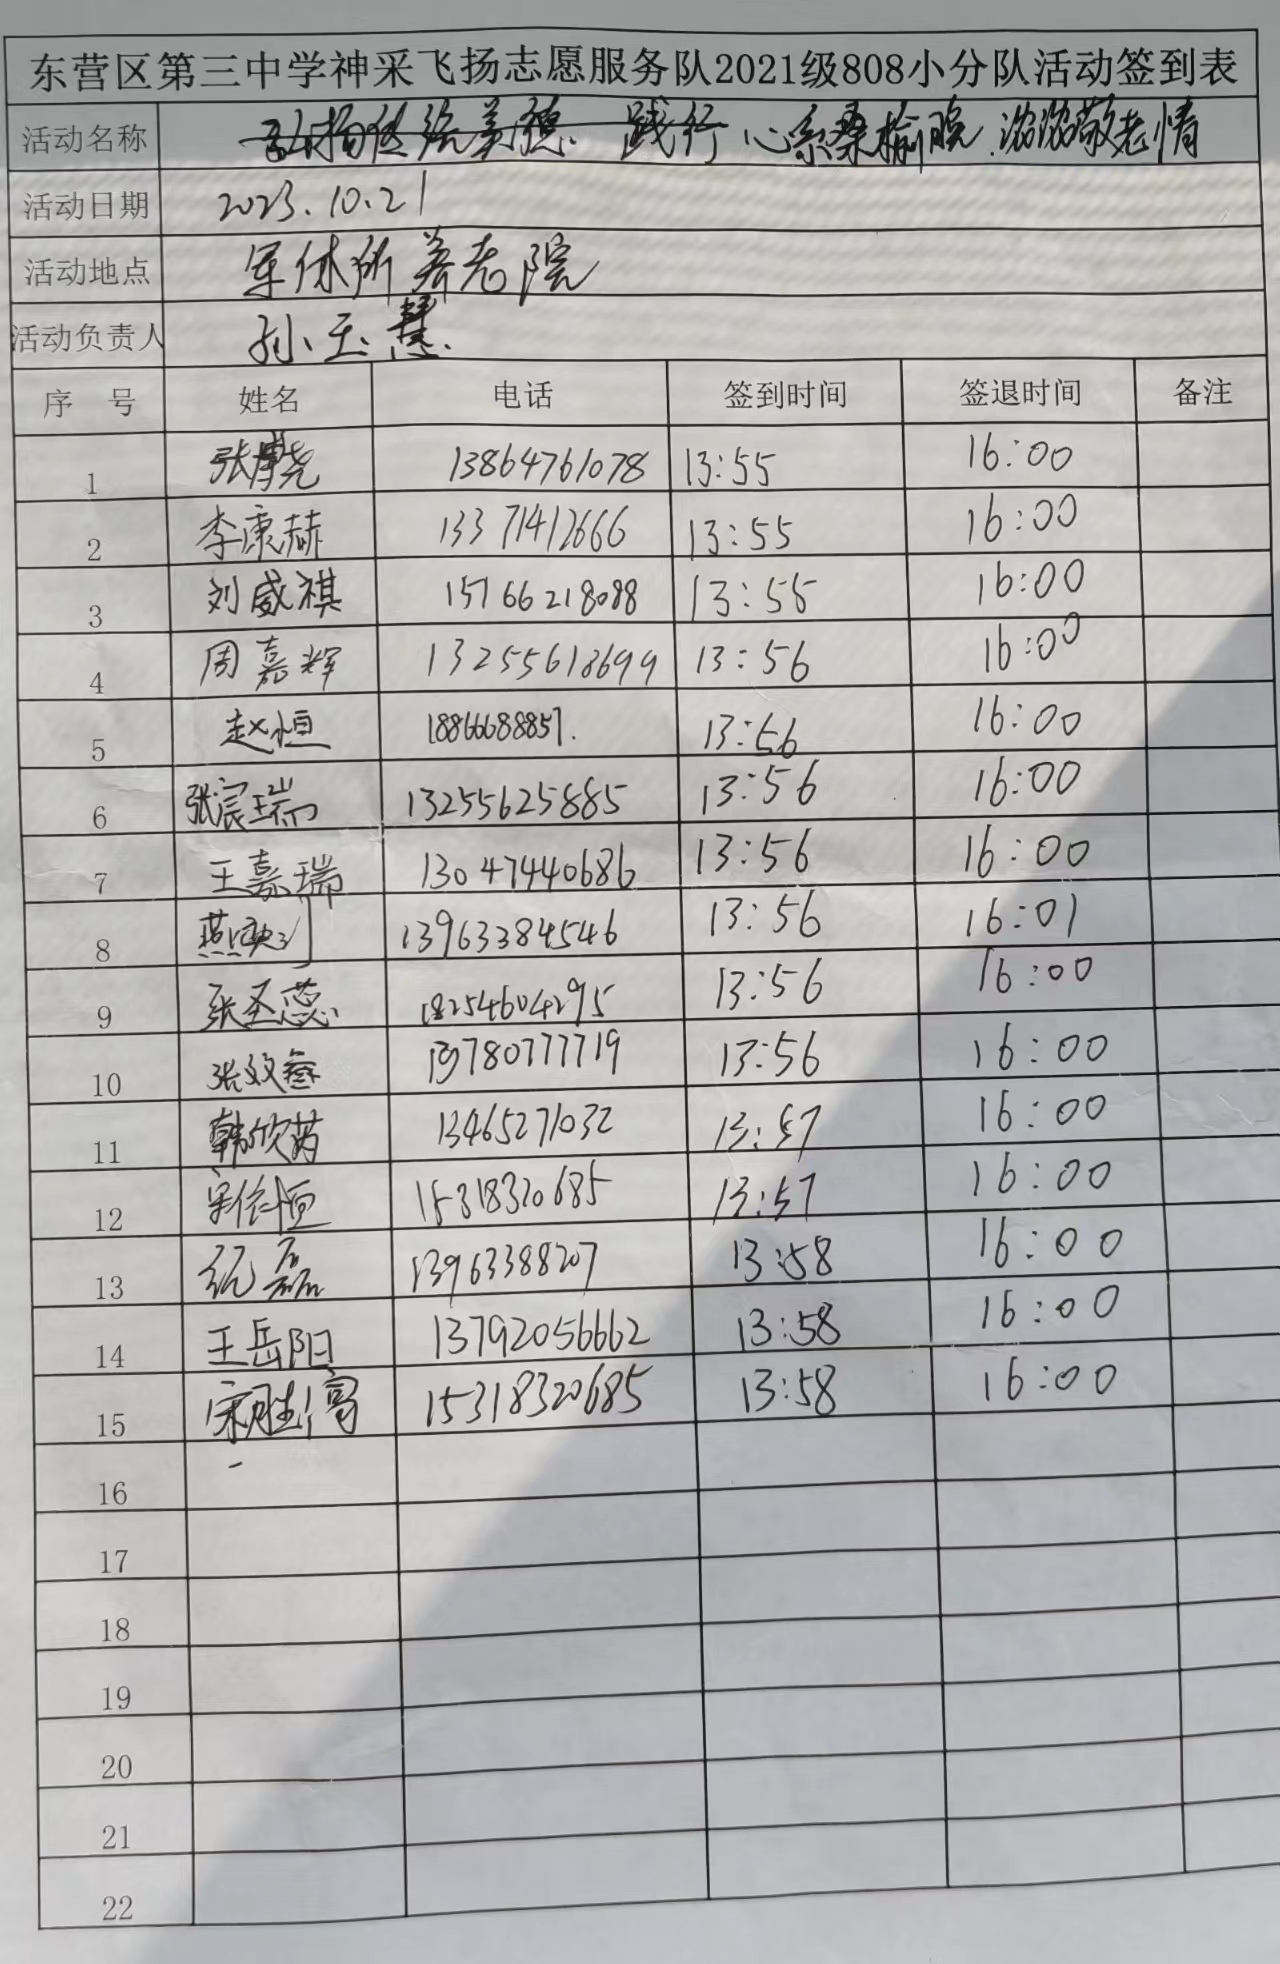 东营区第三中学神采飞扬志愿服务队2021级808小分队活动签到表
活动名称 弘扬传统美德 践行 心系桑榆晚 浓浓敬老情
活动日期 2023.10.21
活动地点 军休所养老院
活动负责人 孙玉慧
序 号 姓名 电话 签到时间 签退时间 备注
1 张 尧 13864761078 13:55 16:00
2 李康赫 13371412666 13:55 16:00
3 刘威祺 15766218088 13:55 16:00
4 周嘉辉 13255618699 13:56 16:00
5 赵恒 18866688857. 13:56 16:00
6 张宸瑞 13255625885 13:56 16:00
7 王嘉瑞 13047440686 13:56 16:00
8 燕 13963384546 13:56 16:01
9 张圣蕊 18254604295 13:56 16:00
10 张效叁 13780777719 13:56 16:00
11 韩欣芮 13465271032 13:57 16:00
12 宋 恒 15318320685 13:57 16:00
13 纪磊 13963388207 13:58 16:00
14 王岳阳 13792056662 13:58 16:00
15 宋胜 15318320685 13:58 16:00
16
17
18
19
20
21
22